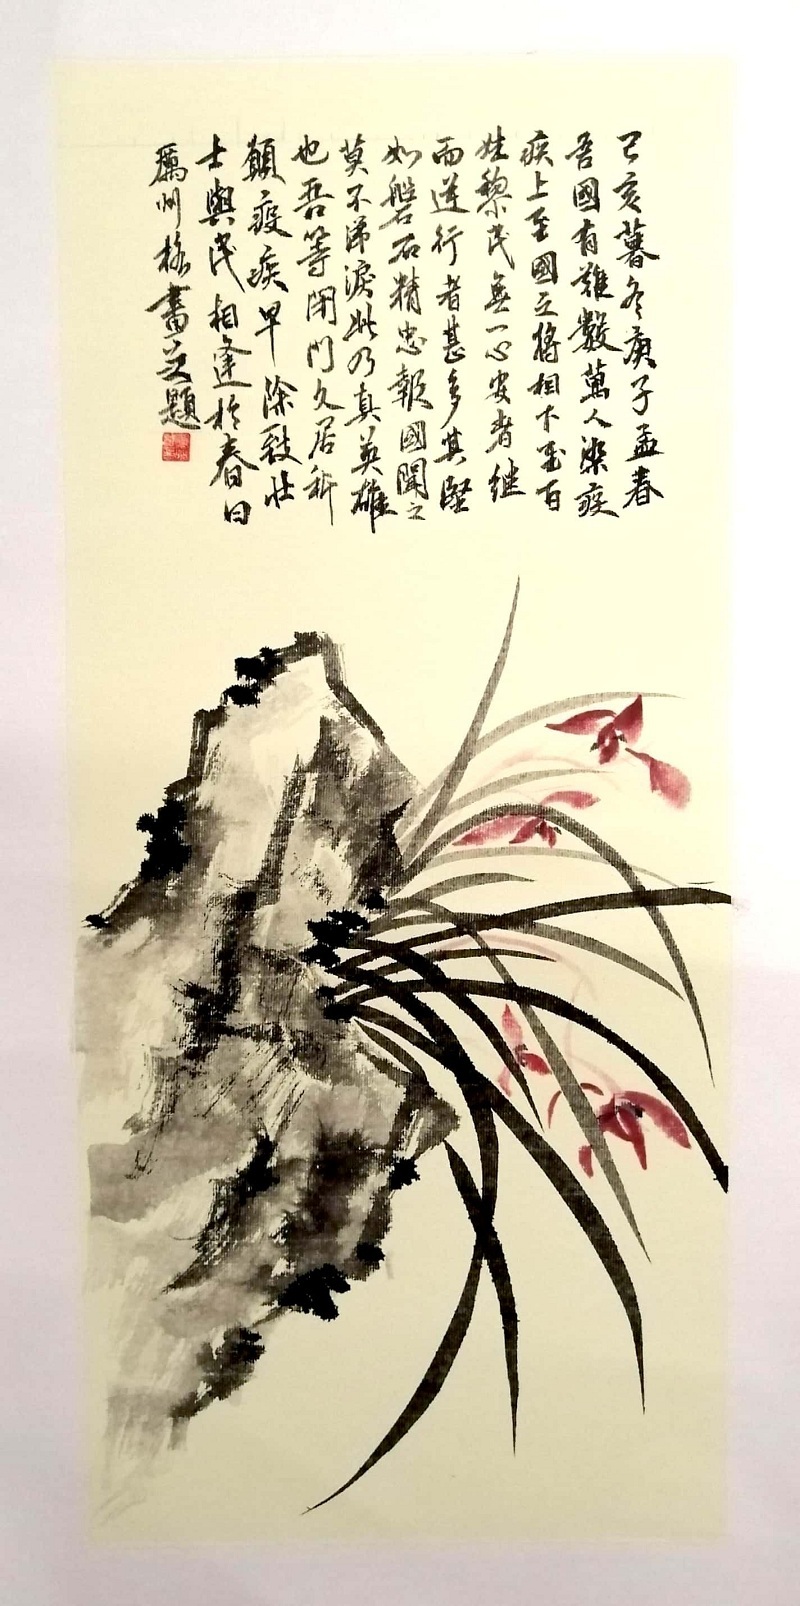 己亥暮冬庚子孟春
吾國有難數萬人染疫
疾上至國之將相下至百
姓黎民無一心安者继
而逆行者甚多其堅
如磐石精忠報國聞之
莫不涕淚此乃真英雄
也吾等閉門久居祈
願疫疾早除毅壮
士與民相逢於春日
書 題